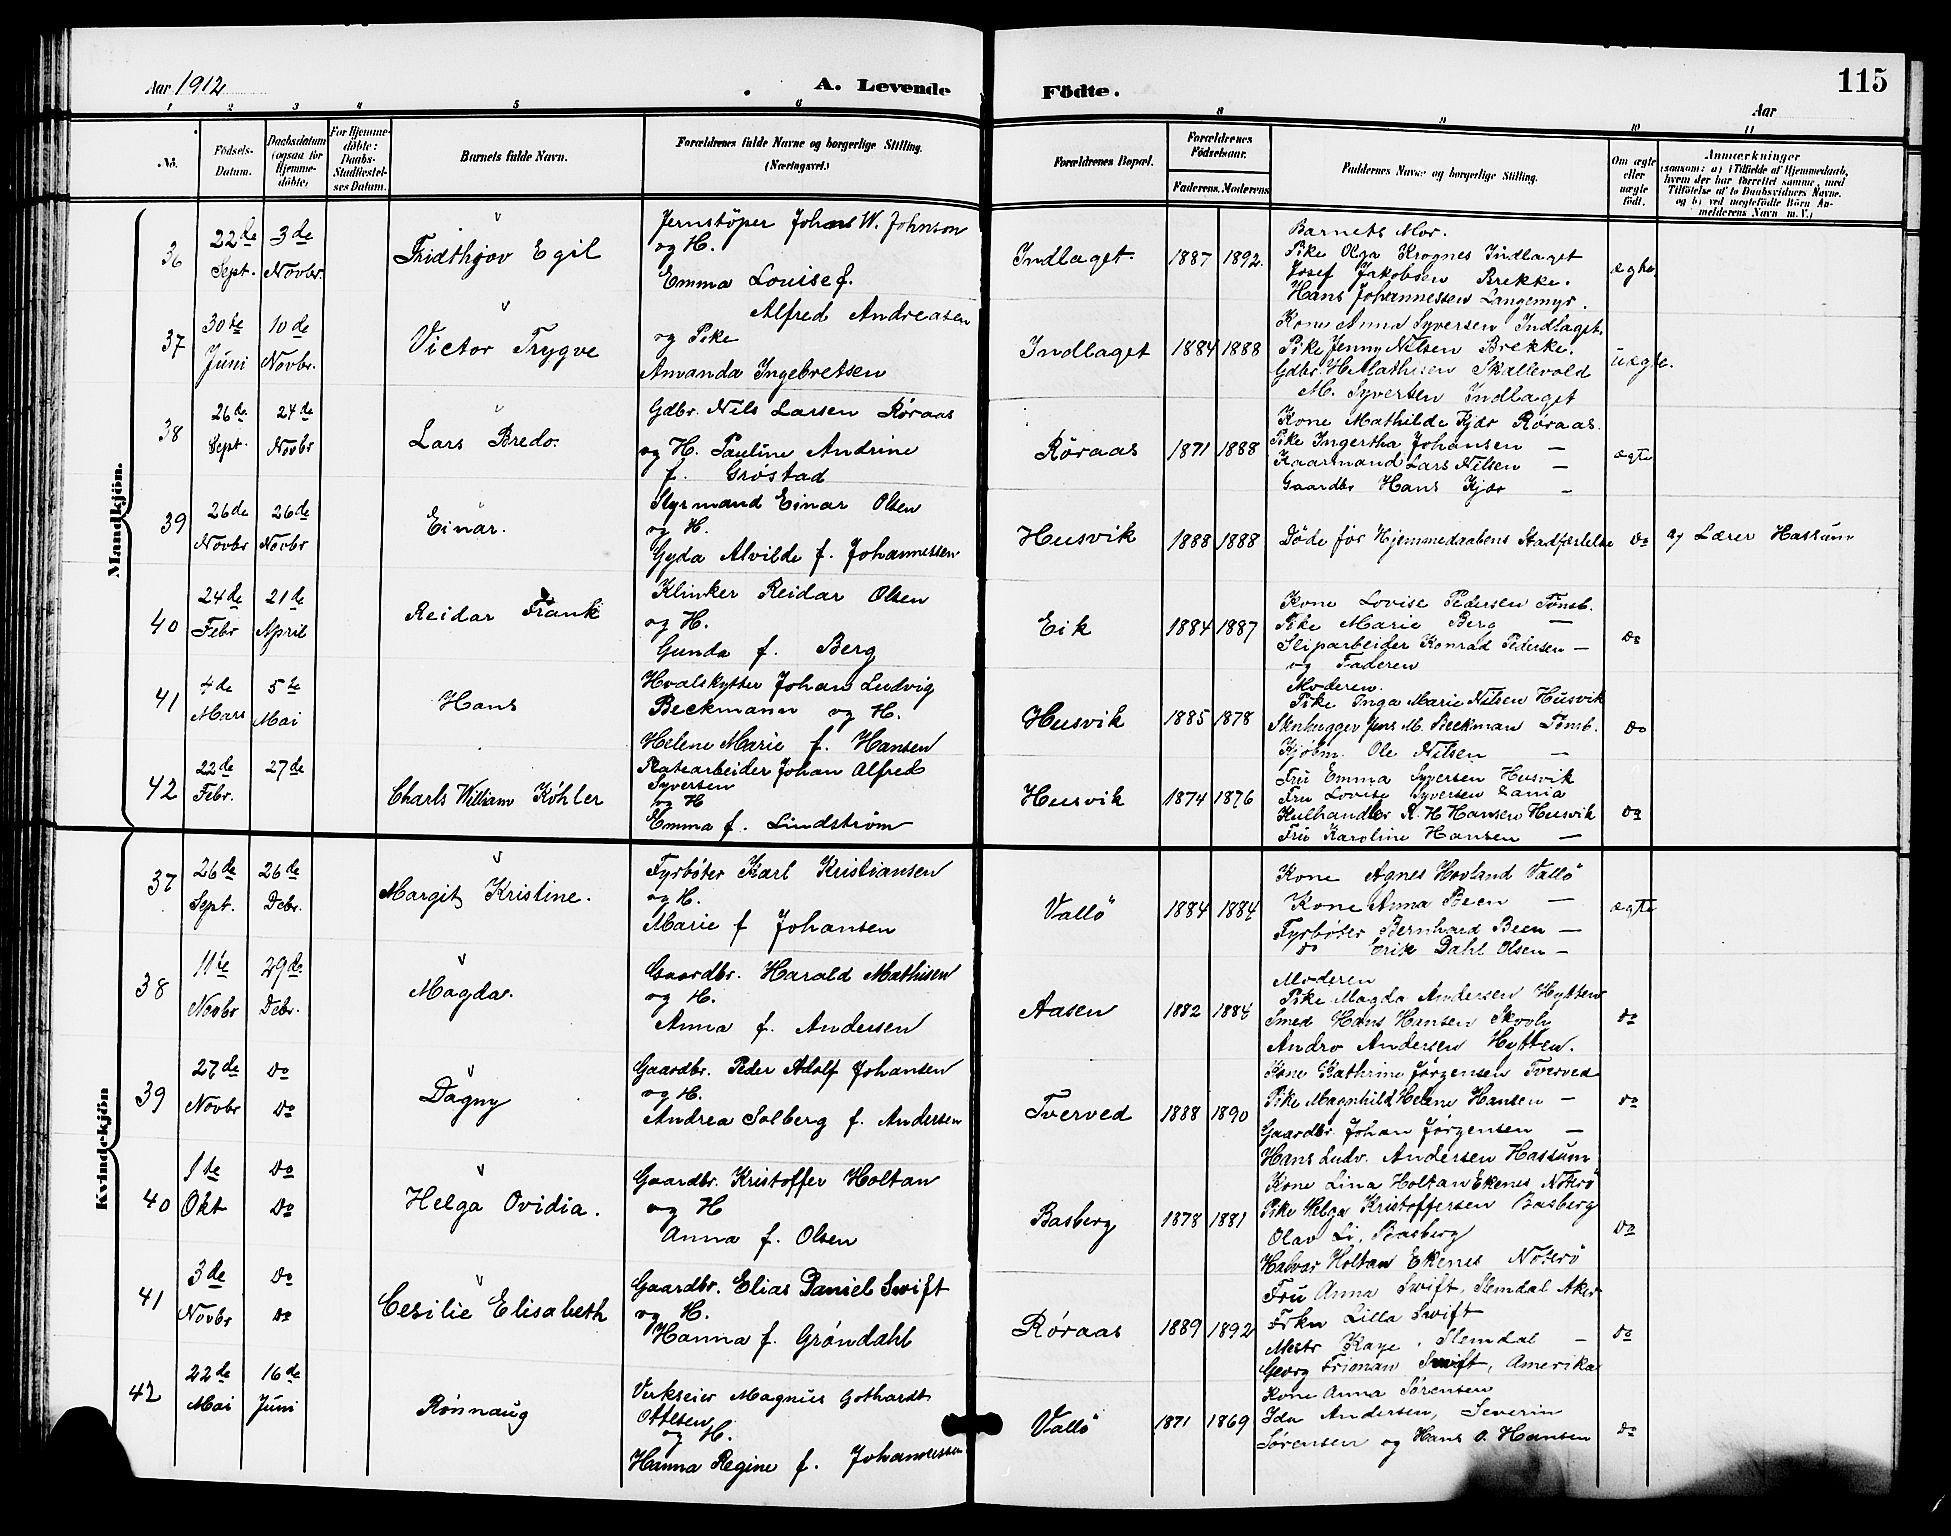 Aar 1912
A. Levende
Födte.
115
Aar
1 2 3 4 5 6
8 9 10 11
No.
Födsels-Datum.
Daabsdatum (ogsaa for Hjemme-döbte)
For Hjemme-döbte: Daabs-Stadfæstel-ses Datum.
Barnets fulde Navn.
Forældrenes fulde Navne og borgerlige Stilling. (Næringsvei.)
Forældrenes Bopæl.
Forældrenes Födselsaar.
Faderens. Moderens.
Faddernes Navne og borgerlige Stilling.
Om ægte eller uægte födt.
Anmærkninger
(saasom: a) i Tilfælde af Hjemmedaab, hvem der har forrettet samme, med Tilföielse af to Daabsvidners Navne, og b) ved uægtefödte Börn An-melderens Navn m. V.)
Mandkjön.
36
22de Sept.
3de Novbr
Fridthjov Egil
Jernstöper Johans W. Johnson
og H.
Emma Louise f.
Indlaget
1887 1892.
Barnets Mor.
Pike Olga Krognes Indlaget
Josef Jakobsen Brekke.
Hans Johannessen Langemyr.
ægte
37
30te Juni
10de Novbr.
Victor Trygve
Alfred Andreasen
og Pike
Amanda Ingebretsen
Indlaget
1884 1888
Kone Anna Syversen Indlaget.
Pike Jenny Nilsen Brekke.
Gdbr. H. Mathisen Skallevold
M. Syversen Indlaget
uægte.
38
26de Sept.
24de Novbr
Lars Bredo.
Gdbr. Nils Larsen Röraas
og H. Pauline Andrine
f. Gröstad
Röraas
1871 1888
Kone Mathilde Kjær Röraas.
Pike Ingertha Johansen —
Kaarmand Lars Nilsen —
Gaardbr Hans Kjær —
ægte
39
26de Novbr
26de Novbr
Einar.
Styrmand Einar Olsen
og H.
Gyda Alvilde f. Johannessen
Husvik
1888 1888
Döde før Hjemmedaabens Stadfæstelse
do
a) Lærer Hassum
40
24de Febr
21de April
Reidar Frank
Klinker Reidar Olsen
og H.
Gunda f. Berg
Eik
1884 1887
Kone Lovise Pedersen Tönsb.
Pike Marie Berg —
Sliparbeider Konrad Pedersen —
og Faderen
do
41
4de Mars
5te Mai
Hans
Hvalskytter Johan Ludvig
Beckmann og H.
Helene Marie f. Hansen
Husvik
1885 1878
Moderen.
Pike Inga Marie Nilsen Husvik
Stenhugger Jens M. Beckman Tönsb.
Kjöbm. Ole Nilsen —
do
42
22de Febr.
27de
Charls William Köhler
Platearbeider Johan Alfred
Syversen
og H
Emma f. Lindström
Husvik
1874 1876
Fru Emma Syversen Husvik
Fru Lovise Syversen
Kulhandler R. H Hansen Husvik
Fru Karoline Hansen —
do
Kvindekjön
37
26de Sept.
26de Debr.
Margit Kristine.
Fyrböter Karl Kristiansen
og H.
Marie f Johansen
Vallö
1884 1884
Kone Agnes Hovland Vallö
Kone Anna Been —
Fyrböter Bernhard Been —
do Erik Dahl Olsen —
ægte
38
11te Novbr
29de Debr.
Magda.
Gaardbr. Harald Mathisen
og H.
Anna f. Andersen
Aasen
1882 1884
Moderen
Pike Magda Andersen Hytten
Smed Hans Hansen Skovly
Andro Andersen Hytten.
do
39
27de Novbr
do do
Dagny
Gaardbr. Peder Adolf Johansen
og H.
Andrea Solberg f. Andersen
Tverved
1888 1890
Kone Kathrine Jörgensen Tverved
Pike Magnhild Helene Hansen —
Gaardbr. Johan Jörgensen —
Hans Ludv. Andersen Hassum
do
40
1de Okt
do do
Helga Ovidia.
Gaardbr. Kristoffer Holtan
og H
Anna f. Olsen
Basberg
1878 1881
Kone Lina Holtan Ekenes Nöterö
Pike Helga Kristoffersen Basberg
Olav Li, Basberg
Halvor Holtan Ekenes Nöterö
do
41
3de Novbr
do do
Cesilie Elisabeth
Gaardbr. Elias Daniel Swift
og H.
Hanna f. Gröndahl
Röraas
1889 1892
Fru Anna Swift, Slemdal Aker
Frkn Lilla Swift
Mestr Kaye, Slemdal —
Georg Frionan Swift, Amerika
do
42
22de Mai
16de Juni
Rönnaug
Verkseier Magnus Gothardt
Ottesen
og H.
Hanna Regine f. Johannessen
Vallö
1871 1869
Kone Anna Sörensen
Ida Andersen, Severin
Sörensen og Hans O. Hansen
do